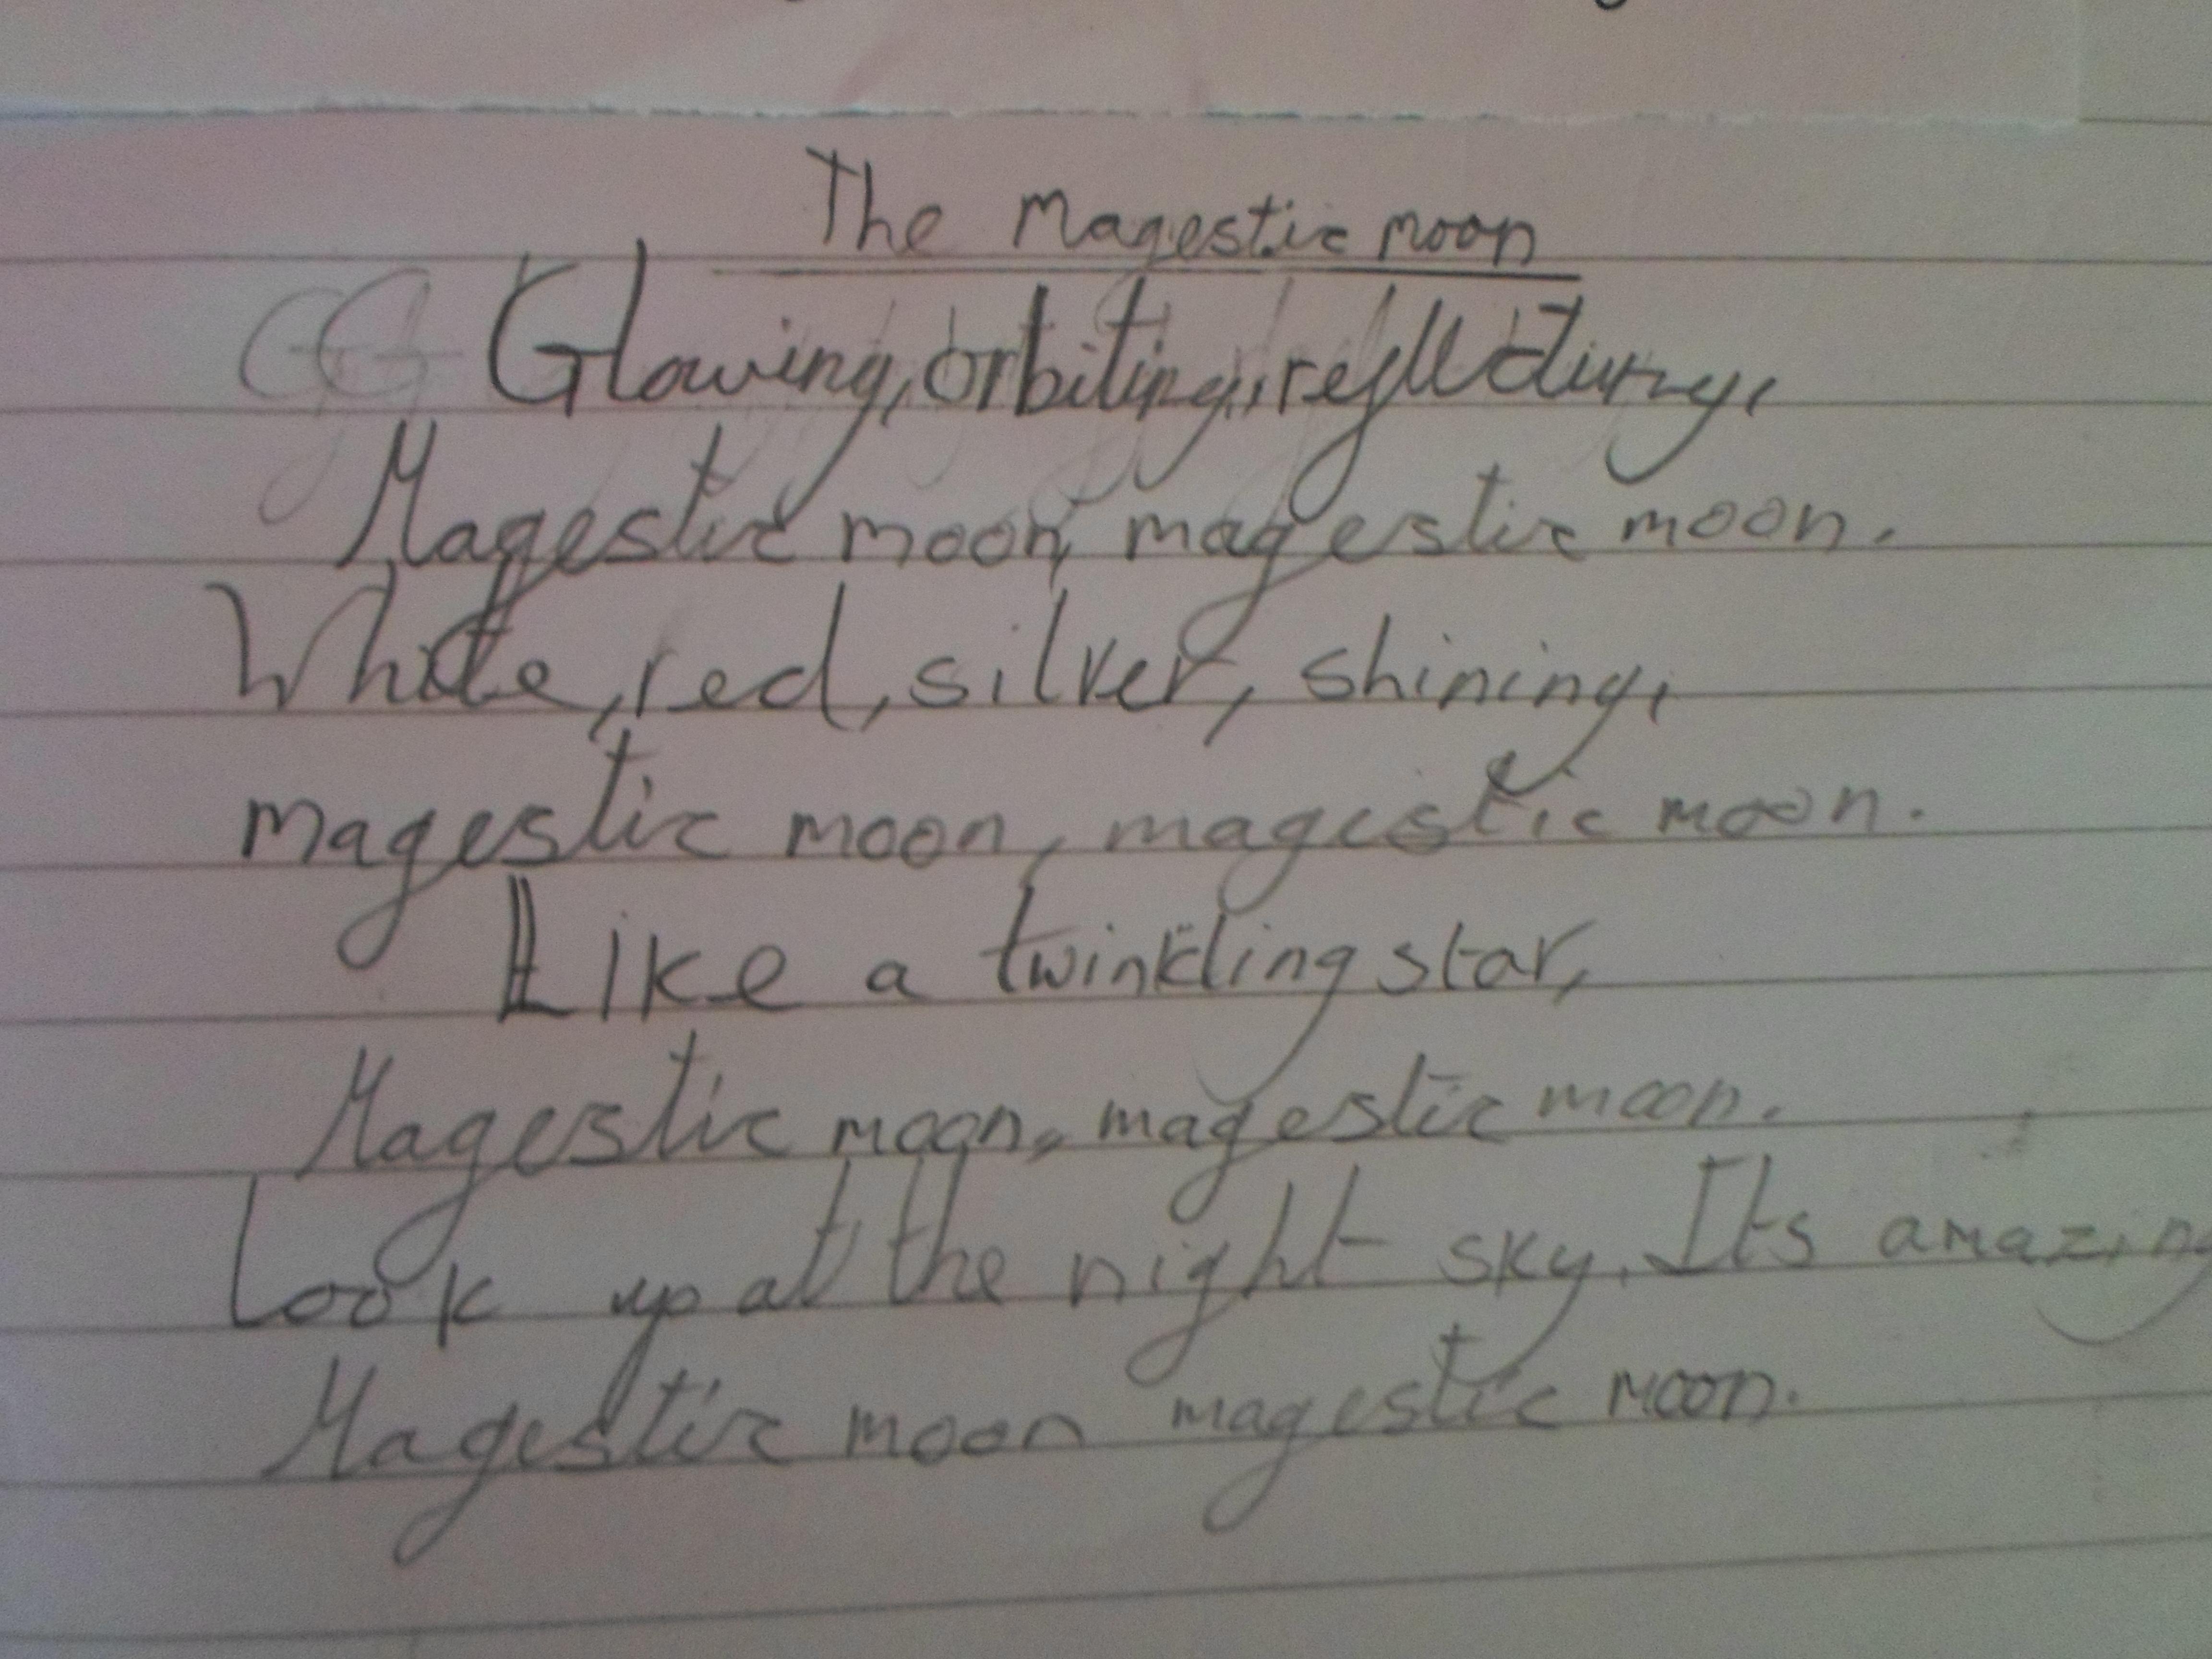 The Magestic moon
Glowing, orbiting, reflecting,
Magestic moon, magestic moon.
White, red, silver, shining,
magestic moon, magestic moon.
Like a twinkling star,
Magestic moon, magestic moon.
Look up at the night sky. Its amazing
Magestic moon magestic moon.